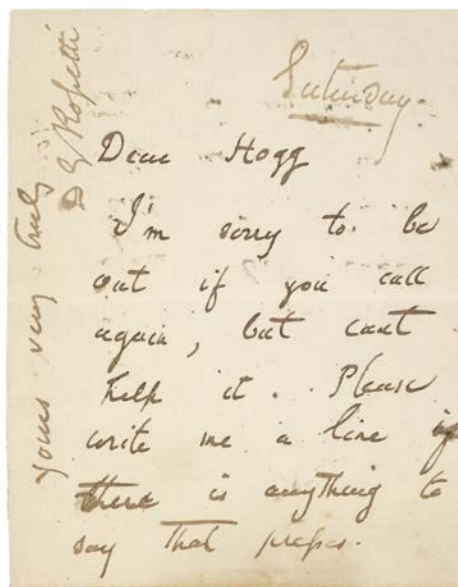 Saturday.
Dear Hogg
I'm sorry to be
out if you call
again, but cant
help it. Please
write me a line if
there is anything to
say that presses.
Yours very truly
D G Rossetti